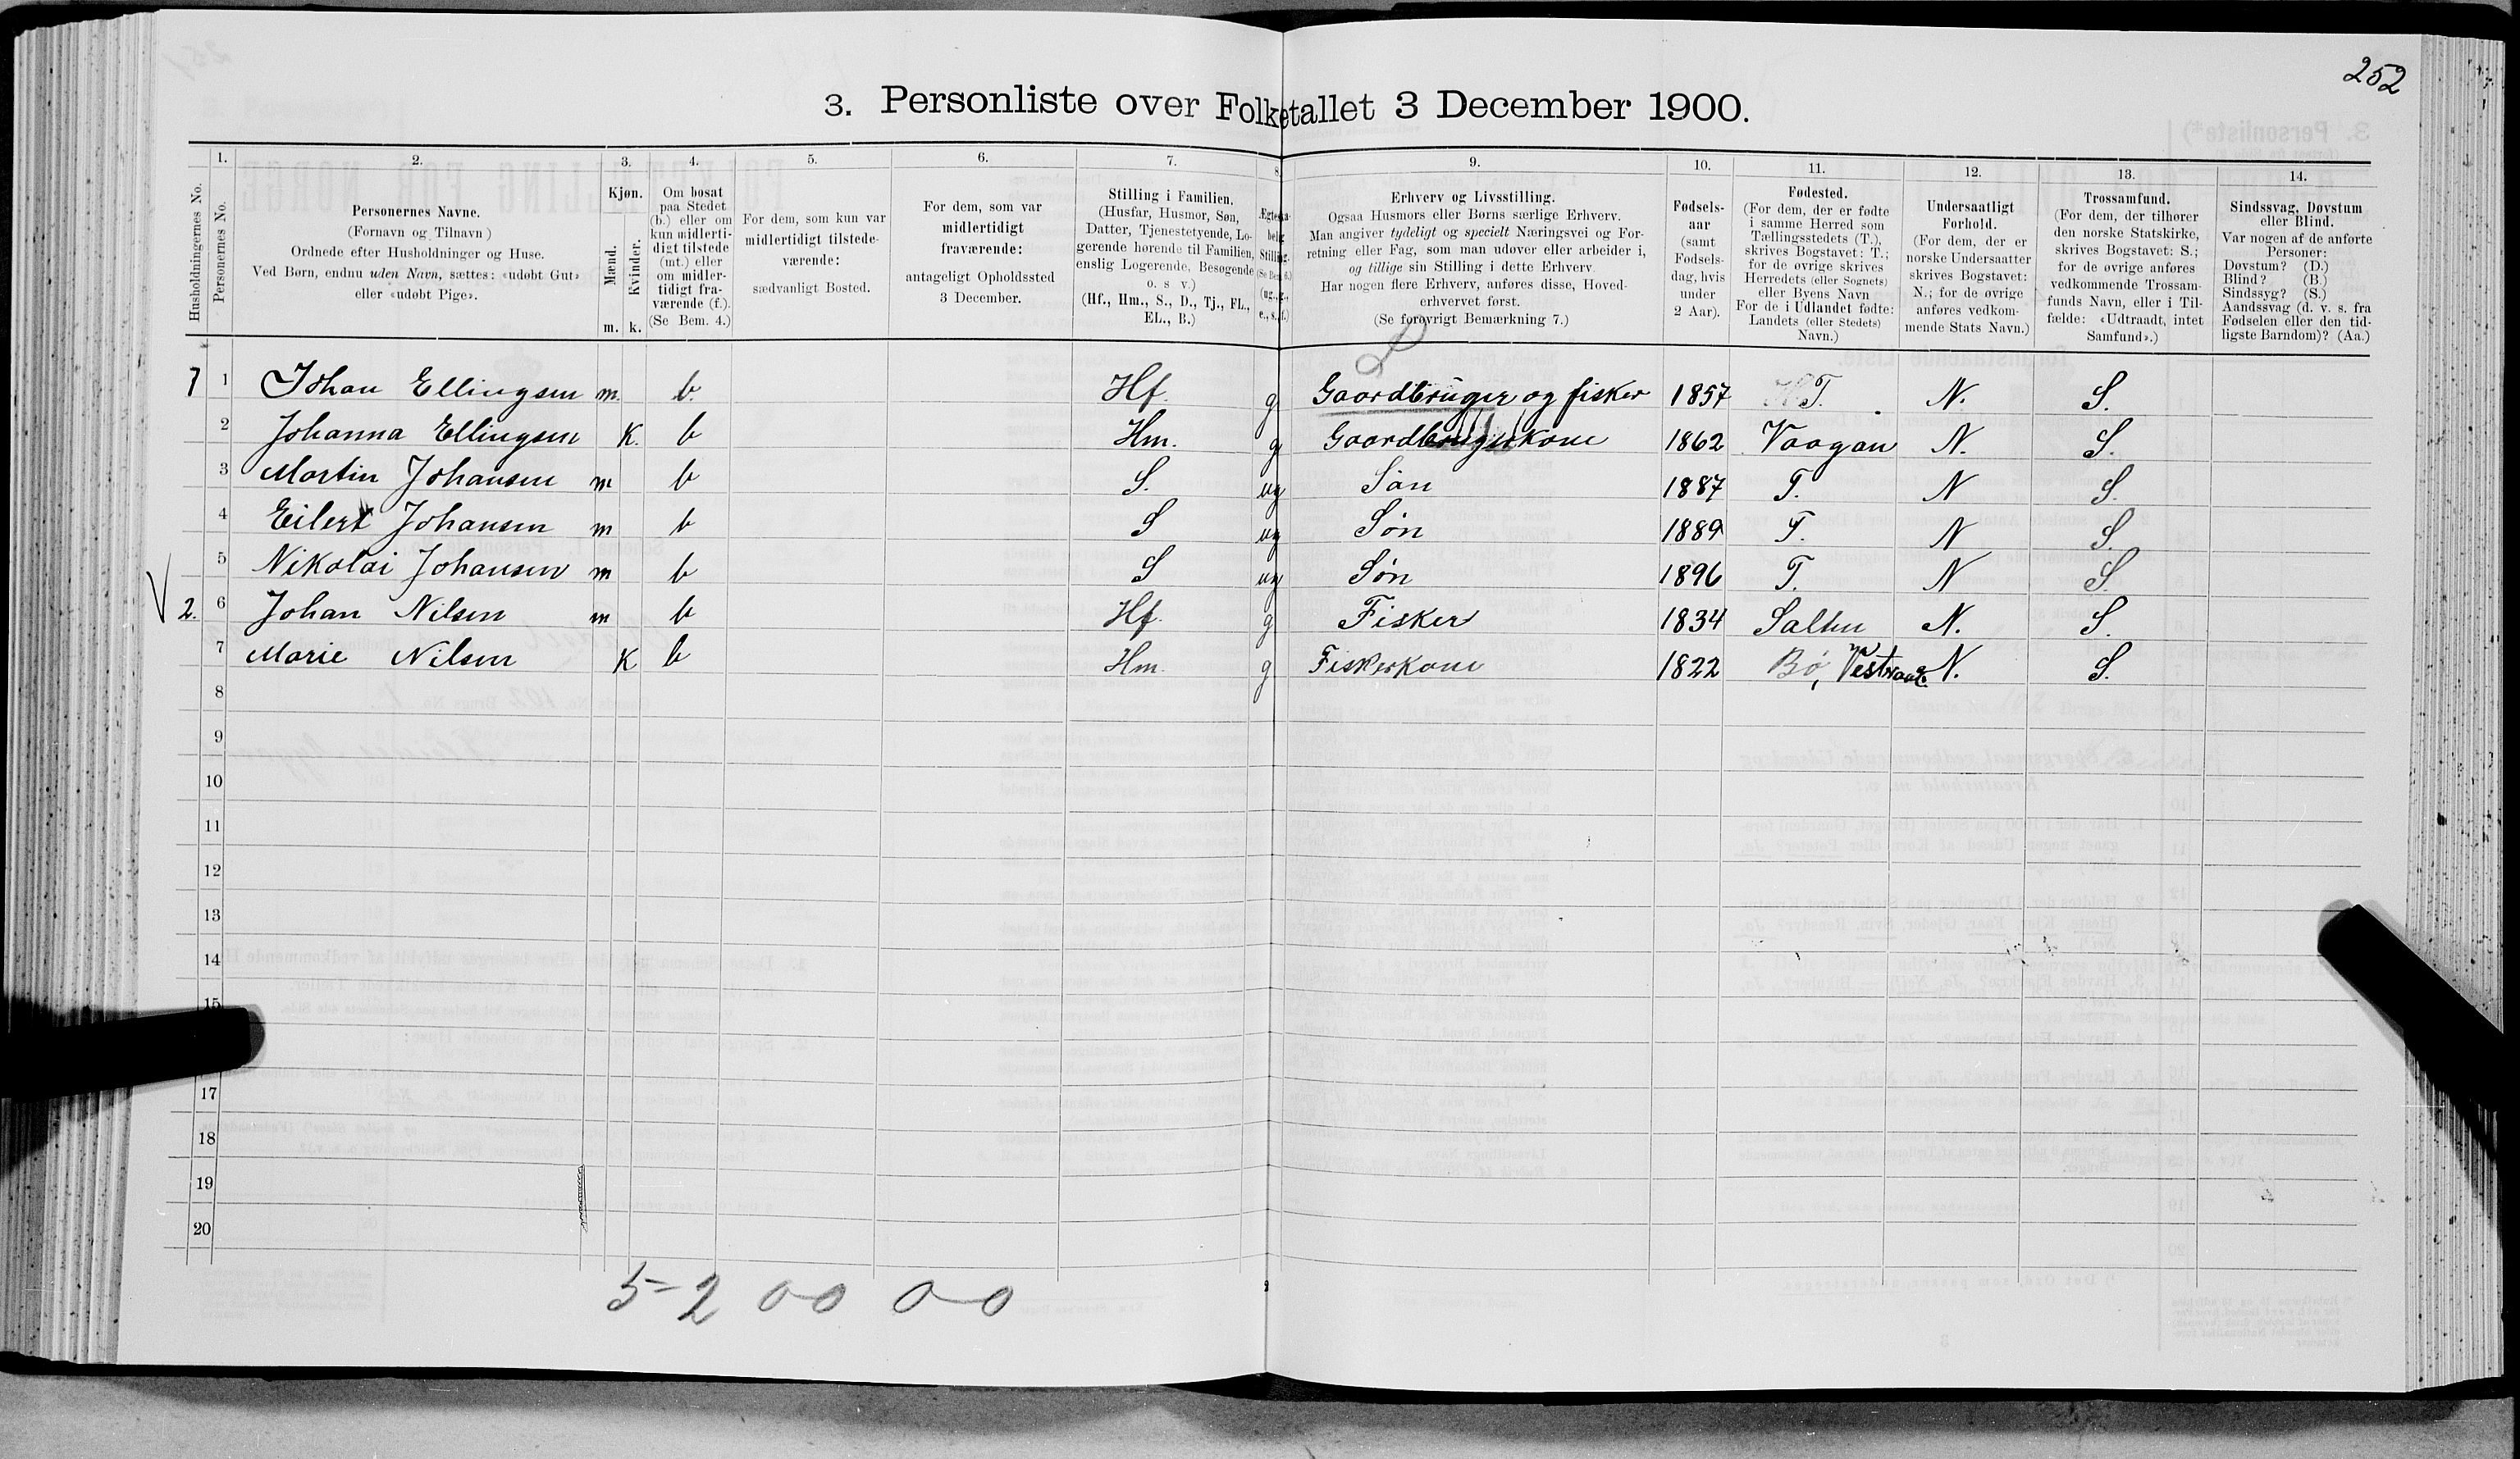 252
3. Personliste over Folketallet 3 December 1900.
1. 2. 3. 4. 5. 6. 7. 8. 9. 10. 11. 12. 13. 14.
Husholdningernes No.
Personernes No.
Personernes Navne.
(Fornavn og Tilnavn)
Ordnede efter Husholdninger og Huse.
Ved Børn, endnu uden Navn, sættes: «udøbt Gut»
eller «udøbt Pige».
Kjøn.
Mænd.
Kvinder.
m. k.
Om bosat
paa Stedet
(b.) eller om
kun midlerti-
digt tilstede
(mt.) eller
om midler-
tidigt fra-
værende (f.).
(Se Bem. 4.)
For dem, som kun var
midlertidigt tilstede-
værende:
sædvanligt Bosted.
For dem, som var
midlertidigt
fraværende:
antageligt Opholdssted
3 December.
Stilling i Familien.
(Husfar, Husmor, Søn,
Datter, Tjenestetyende, Lo-
gerende hørende til Familien,
enslig Logerende, Besøgende
o. s v.)
(Hf., Hm., S., D., Tj., FL.,
EL., B.)
Ægteska-
belig
Stilling.
(Se Bem. 6.)
(ug., g.,
e., s., f.)
Erhverv og Livsstilling.
Ogsaa Husmors eller Børns særlige Erhverv.
Man angiver tydeligt og specielt Næringsvei og For-
retning eller Fag, som man udøver eller arbeider i,
og tillige sin Stilling i dette Erhverv.
Har nogen flere Erhverv, anføres disse, Hoved-
erhvervet først.
(Se forøvrigt Bemærkning 7.)
Fødsels-
aar
(samt
Fødsels-
dag, hvis
under
2 Aar).
Fødested.
(For dem, der er fødte
i samme Herred som
Tællingsstedets (T.),
skrives Bogstavet: T.;
for de øvrige skrives
Herredets (eller Sognets)
eller Byens Navn
For de i Udlandet fødte:
Landets (eller Stedets)
Navn.)
Undersaatligt
Forhold.
(For dem, der er
norske Undersaatter
skrives Bogstavet:
N.; for de øvrige
anføres vedkom-
mende Stats Navn.)
Trossamfund.
(For dem, der tilhører
den norske Statskirke,
skrives Bogstavet: S.;
for de øvrige anføres
vedkommende Trossam-
funds Navn, eller i Til-
fælde: «Udtraadt, intet
Samfund».)
Sindssvag, Døvstum
eller Blind.
Var nogen af de anførte
Personer:
Døvstum? (D.)
Blind? (B.)
Sindssyg? (S.)
Aandssvag (d. v. s. fra
Fødselen eller den tid-
ligste Barndom)? (Aa.)
1 1 Johan Ellingsen m. b. Hf. g Gaardbruger og fisker 1857 T. N. S.
2 Johanna Ellingsen K. b Hm. g Gaardbrugerkone 1862 Vaagan N. S.
3 Martin Johansen m b S. ug Søn 1887 T. N S.
4 Eilert Johansen m b S ug Søn 1889 T. N S.
5 Nikolai Johansen m b S ug Søn 1896 T. N S.
2. 6 Johan Nilsen m b Hf. g Fisker 1834 Salten N. S.
7 Marie Nilsen K b Hm. g Fiskerkone 1822 Bø, Vestraal. N. S.
8
9
10
11
12
13
14
15
17
18
19
20
5-2 0-0 0-0